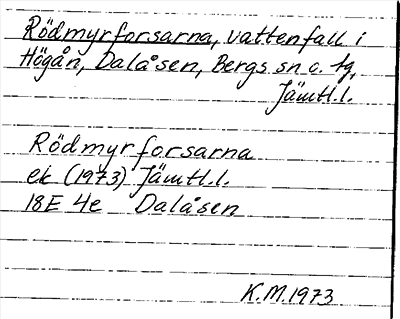 Rödmyrforsarna, vattenfall i
Högån, Dalåsen, Bergs sn o. tg,
Jämtl.l.
Rödmyrforsarna
ek (1973) Jämtl.l.
18E 4e Dalåsen
K.M.1973